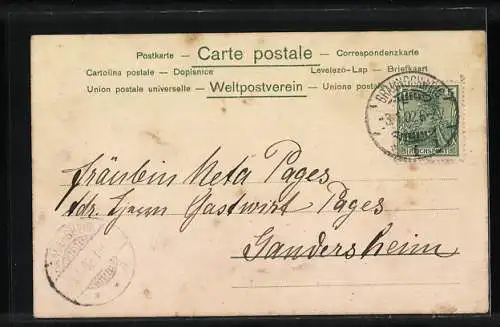 Postkarte – Carte postale – Correspondenzkarte
Cartolina postale – Dopisnice Levelezö-Lap – Briefkaart
Union postale universelle – Weltpostverein – Unione postale
5
REICHSPOST
Fräulein Neta Pages
adr. Herrn Gastwirt Pages
Gandersheim